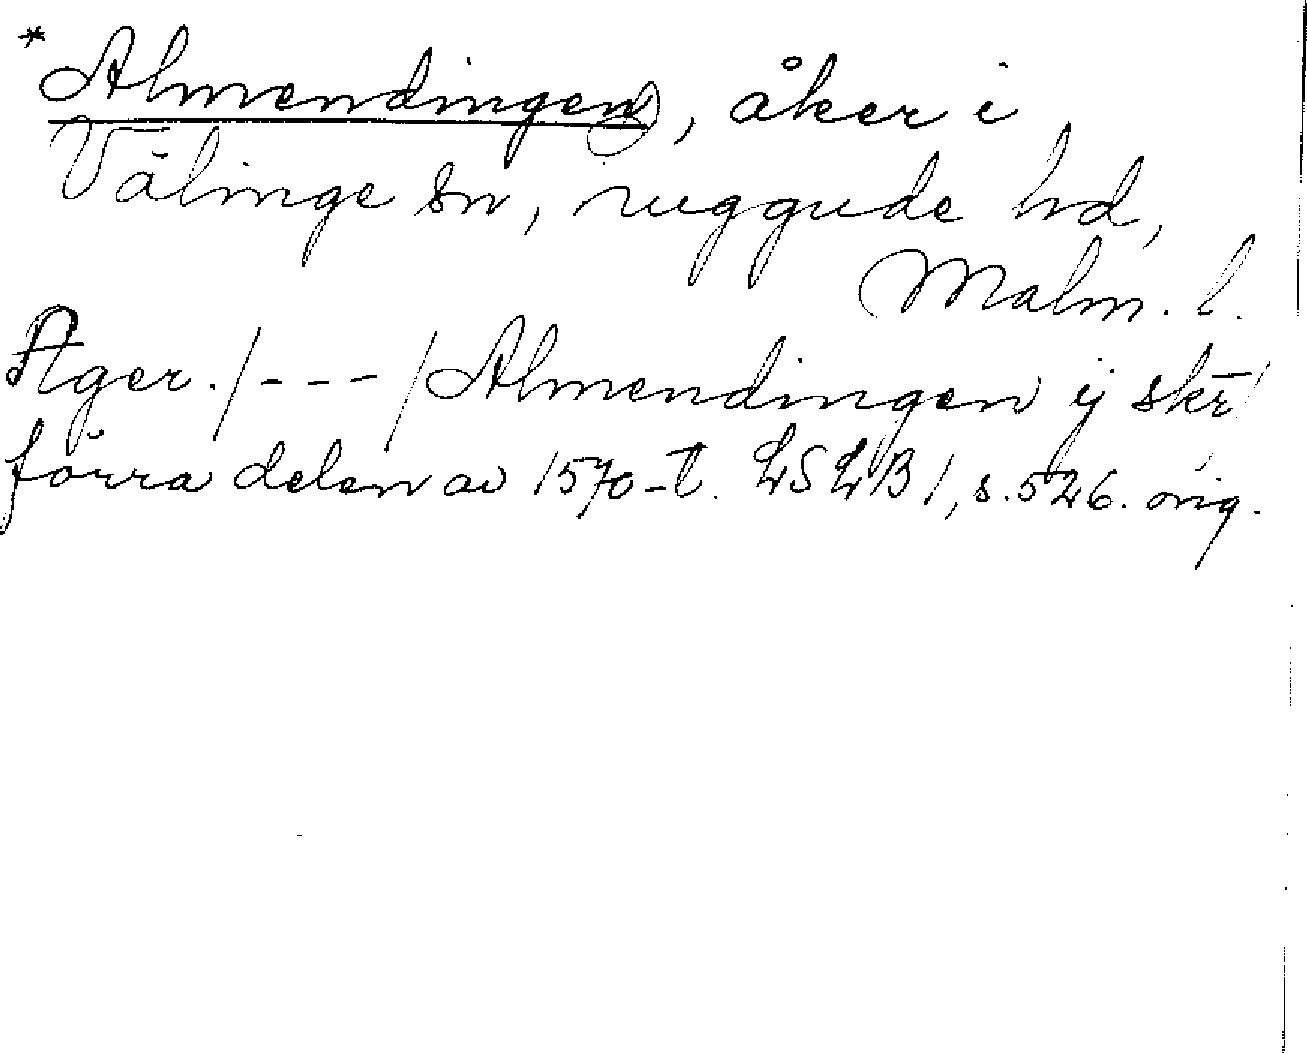 *Almendingen, åker i
Välinge sn, Luggude hd,
Malm. l.
Ager. /---/ Almendingen ij skr̄
förra delen av 1570-t. LSLB 1, s. 526. orig.